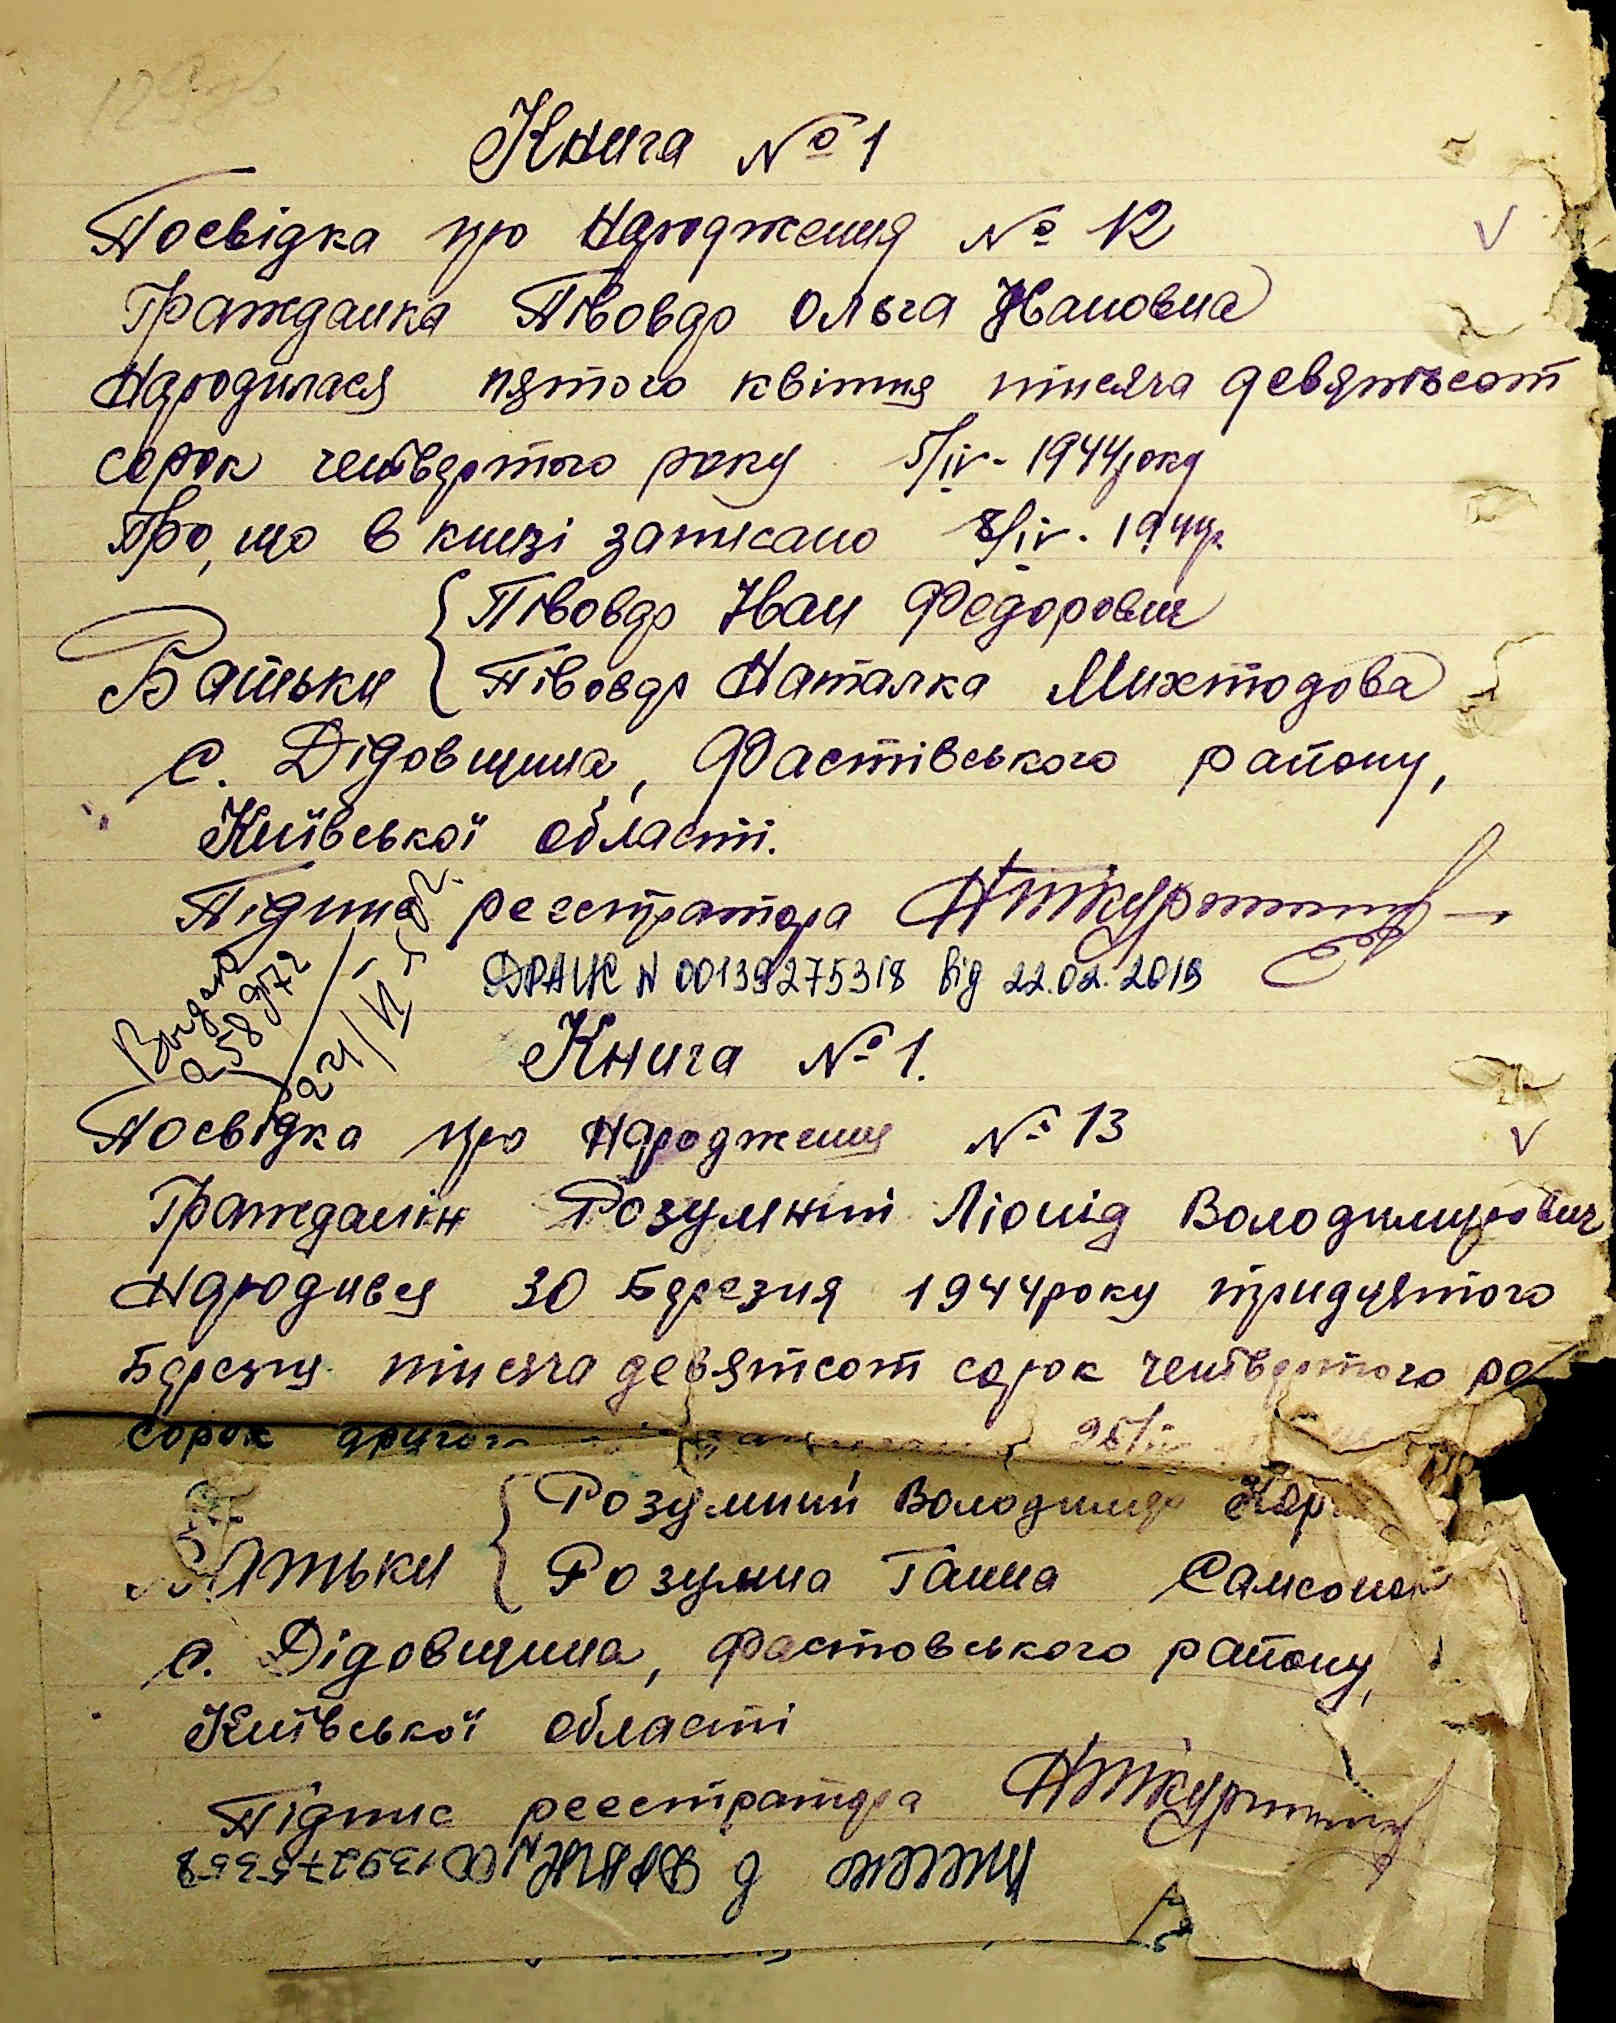 Книга № 1
Посвідка про Народження № 12
Гражданка Півовар Ольга Івановна
Народилася пятого квітня тисяча девятьсот
сорок четвертого року 5/IV - 1944 року
Про, що в книзі записано 8/IV - 1944р.
Батьки
Півовар Іван Федорович
Півовар Наталка Михтодова
с. Дідовщина, Фастівського району,
Київської області.
Підпис реєстратора
ДРАЦС N 00139275318 від 22.02.2019
Книга № 1.
Посвідка про Народження № 13
Гражданін Розумний Ліонід Володимирович
Народився 30 Березня 1944 року тридцятого
Березня тисяча девятсот сорок четвертого ро
сорок другого
Батьки
Розумний Володимир
Розумна Ганна
с. Дідовщина, Фастовського району,
Київської області
Підпис реєстратора